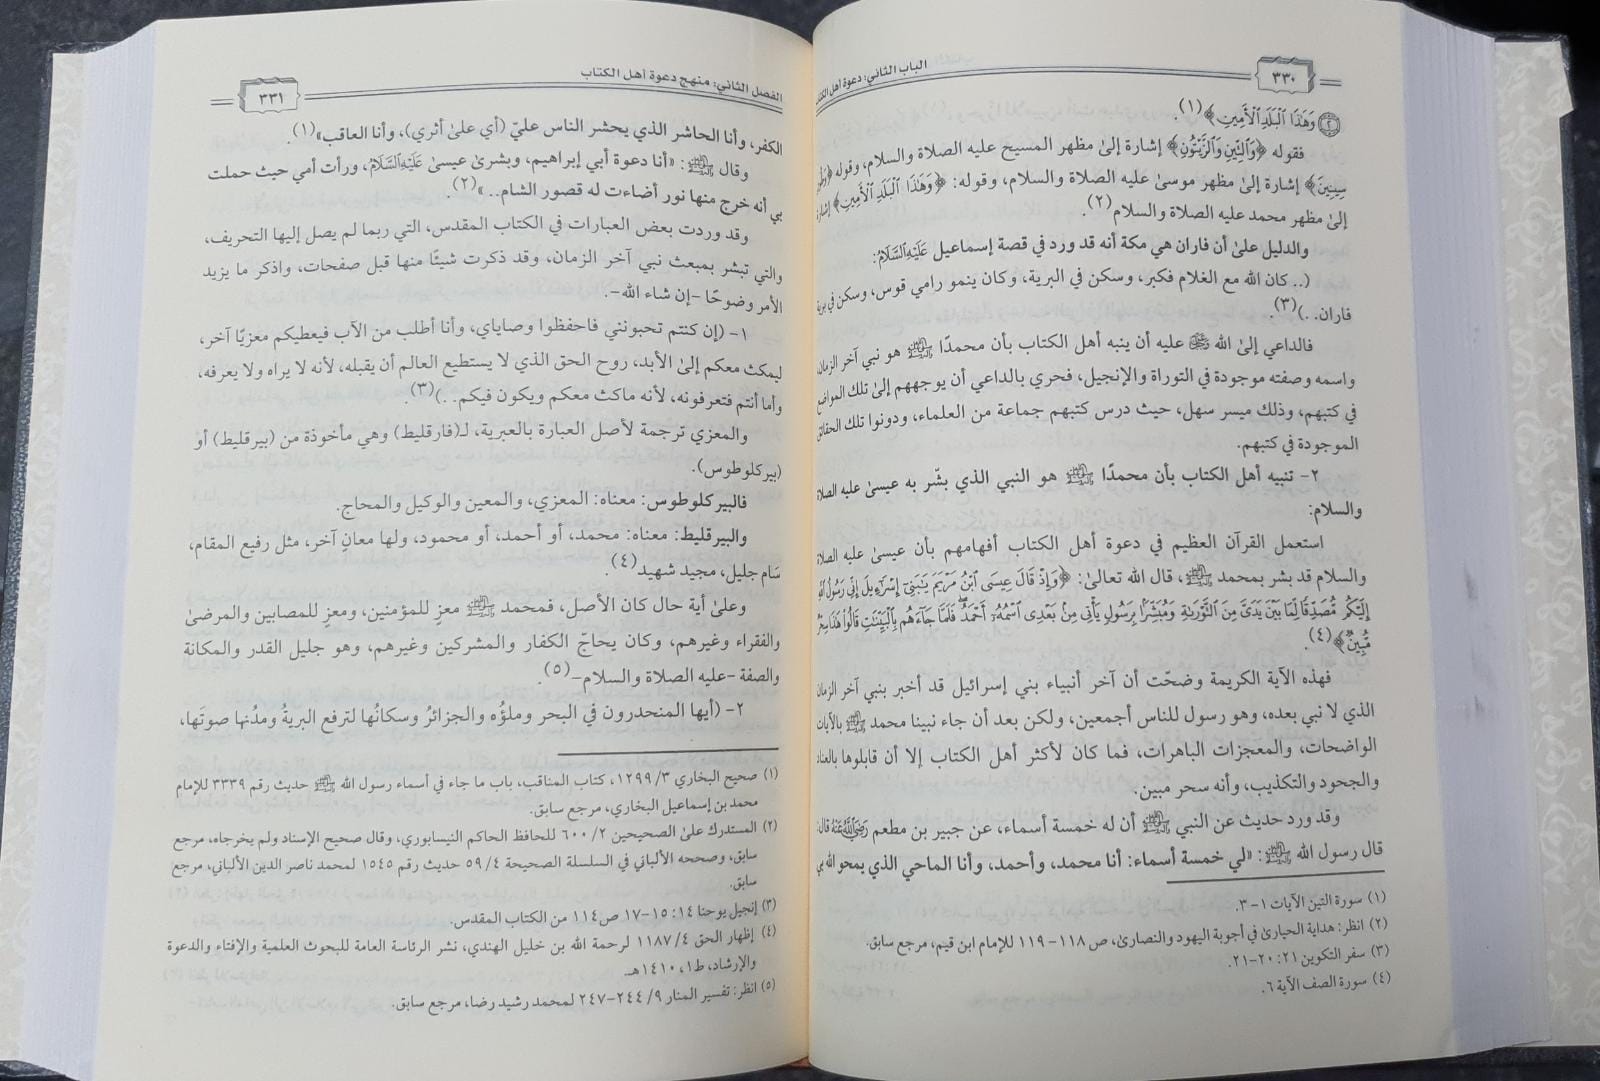 ٣٣٠
الباب الثاني: دعوة أهل الكتاب
﴿٢﴾ وَهَٰذَا ٱلۡبَلَدِ ٱلۡأَمِينِ﴾(١).
فقوله ﴿وَٱلتِّينِ وَٱلزَّيۡتُونِ﴾ إشارة إلىٰ مظهر المسيح عليه الصلاة والسلام، وقوله ﴿وَطُورِ
سِينِينَ﴾ إشارة إلىٰ مظهر موسىٰ عليه الصلاة والسلام، وقوله: ﴿وَهَٰذَا ٱلۡبَلَدِ ٱلۡأَمِينِ﴾ إشارة
إلىٰ مظهر محمد عليه الصلاة والسلام(٢).
والدليل علىٰ أن فاران هي مكة أنه قد ورد في قصة إسماعيل عَلَيْهِ السَّلَامُ:
(.. كان الله مع الغلام فكبر، وسكن في البرية، وكان ينمو رامي قوس، وسكن في برية
فاران..)(٣).
فالداعي إلىٰ الله ﷻ عليه أن ينبه أهل الكتاب بأن محمدًا ﷺ هو نبي آخر الزمان
واسمه وصفته موجودة في التوراة والإنجيل، فحري بالداعي أن يوجههم إلىٰ تلك المواضع
في كتبهم، وذلك ميسر سهل، حيث درس كتبهم جماعة من العلماء، ودونوا تلك الحقائق
الموجودة في كتبهم.
٢- تنبيه أهل الكتاب بأن محمدًا ﷺ هو النبي الذي بشّر به عيسىٰ عليه الصلاة
والسلام:
استعمل القرآن العظيم في دعوة أهل الكتاب أفهامهم بأن عيسىٰ عليه الصلاة
والسلام قد بشر بمحمد ﷺ، قال الله تعالىٰ: ﴿وَإِذۡ قَالَ عِيسَى ٱبۡنُ مَرۡيَمَ يَٰبَنِيٓ إِسۡرَٰٓءِيلَ إِنِّي رَسُولُ ٱللَّهِ
إِلَيۡكُم مُّصَدِّقٗا لِّمَا بَيۡنَ يَدَيَّ مِنَ ٱلتَّوۡرَىٰةِ وَمُبَشِّرَۢا بِرَسُولٖ يَأۡتِي مِنۢ بَعۡدِي ٱسۡمُهُۥٓ أَحۡمَدُۖ فَلَمَّا جَآءَهُم بِٱلۡبَيِّنَٰتِ قَالُواْ هَٰذَا سِحۡرٞ
مُّبِينٞ﴾(٤).
فهذه الآية الكريمة وضحّت أن آخر أنبياء بني إسرائيل قد أخبر بنبي آخر الزمان
الذي لا نبي بعده، وهو رسول للناس أجمعين، ولكن بعد أن جاء نبينا محمد ﷺ بالآيات
الواضحات، والمعجزات الباهرات، فما كان لأكثر أهل الكتاب إلا أن قابلوها بالعناد
والجحود والتكذيب، وأنه سحر مبين.
وقد ورد حديث عن النبي ﷺ أن له خمسة أسماء، عن جبير بن مطعم رَضِيَ اللَّهُ عَنْهُ قال:
قال رسول الله ﷺ: «لي خمسة أسماء: أنا محمد، وأحمد، وأنا الماحي الذي يمحو الله بي
(١) سورة التين الآيات ١-٣.
(٢) انظر: هداية الحيارىٰ في أجوبة اليهود والنصارىٰ، ص ١١٨-١١٩ للإمام ابن قيم، مرجع سابق.
(٣) سفر التكوين ٢١: ٢٠-٢١.
(٤) سورة الصف الآية ٦.
الفصل الثاني: منهج دعوة أهل الكتاب
٣٣١
الكفر، وأنا الحاشر الذي يحشر الناس عليّ (أي علىٰ أثري)، وأنا العاقب»(١).
وقال ﷺ: «أنا دعوة أبي إبراهيم، وبشرىٰ عيسىٰ عَلَيْهِ السَّلَامُ، ورأت أمي حيث حملت
بي أنه خرج منها نور أضاءت له قصور الشام..»(٢).
وقد وردت بعض العبارات في الكتاب المقدس، التي ربما لم يصل إليها التحريف،
والتي تبشر بمبعث نبي آخر الزمان، وقد ذكرت شيئًا منها قبل صفحات، واذكر ما يزيد
الأمر وضوحًا -إن شاء الله-.
١- (إن كنتم تحبونني فاحفظوا وصاياي، وأنا أطلب من الآب فيعطيكم معزيًا آخر،
ليمكث معكم إلىٰ الأبد، روح الحق الذي لا يستطيع العالم أن يقبله، لأنه لا يراه ولا يعرفه،
وأما أنتم فتعرفونه، لأنه ماكث معكم ويكون فيكم..)(٣).
والمعزي ترجمة لأصل العبارة بالعبرية، لـ(فارقليط) وهي مأخوذة من (بيرقليط) أو
(بيركلوطوس).
فالبيركلوطوس: معناه: المعزي، والمعين والوكيل والمحاج.
والبيرقليط: معناه: محمد، أو أحمد، أو محمود، ولها معانٍ آخر، مثل رفيع المقام،
سَام جليل، مجيد شهيد(٤).
وعلىٰ أية حال كان الأصل، فمحمد ﷺ معزٍ للمؤمنين، ومعزٍ للمصابين والمرضىٰ
والفقراء وغيرهم، وكان يحاجّ الكفار والمشركين وغيرهم، وهو جليل القدر والمكانة
والصفة -عليه الصلاة والسلام-(٥).
٢- (أيها المنحدرون في البحر وملؤُه والجزائرُ وسكانُها لترفع البريةُ ومدُنها صوتَها،
(١) صحيح البخاري ٣/ ١٢٩٩، كتاب المناقب، باب ما جاء في أسماء رسول الله ﷺ حديث رقم ٣٣٣٩ للإمام
محمد بن إسماعيل البخاري، مرجع سابق.
(٢) المستدرك علىٰ الصحيحين ٢/ ٦٠٠ للحافظ الحاكم النيسابوري، وقال صحيح الإسناد ولم يخرجاه، مرجع
سابق، وصححه الألباني في السلسلة الصحيحة ٤/ ٥٩ حديث رقم ١٥٤٥ لمحمد ناصر الدين الألباني، مرجع
سابق.
(٣) إنجيل يوحنا ١٤: ١٥-١٧ ص١١٤ من الكتاب المقدس.
(٤) إظهار الحق ٤/ ١١٨٧ لرحمة الله بن خليل الهندي، نشر الرئاسة العامة للبحوث العلمية والإفتاء والدعوة
والإرشاد، ط١، ١٤١٠هـ.
(٥) انظر: تفسير المنار ٩/ ٢٤٤-٢٤٧ لمحمد رشيد رضا، مرجع سابق.